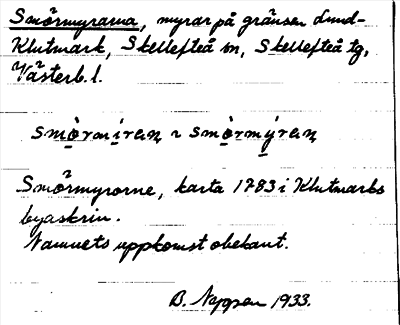 Smörmyrarna, myrar på gränsen Lund-
Klutmark, Skellefteå sn, Skellefteå tg,
Västerb. l.
smö̀rmíran ɿ smö̀rmýran
Smörmyrorne, karta 1783 i Klutmarks
byaskrin.
Namnets uppkomst obekant.
B. 1933.